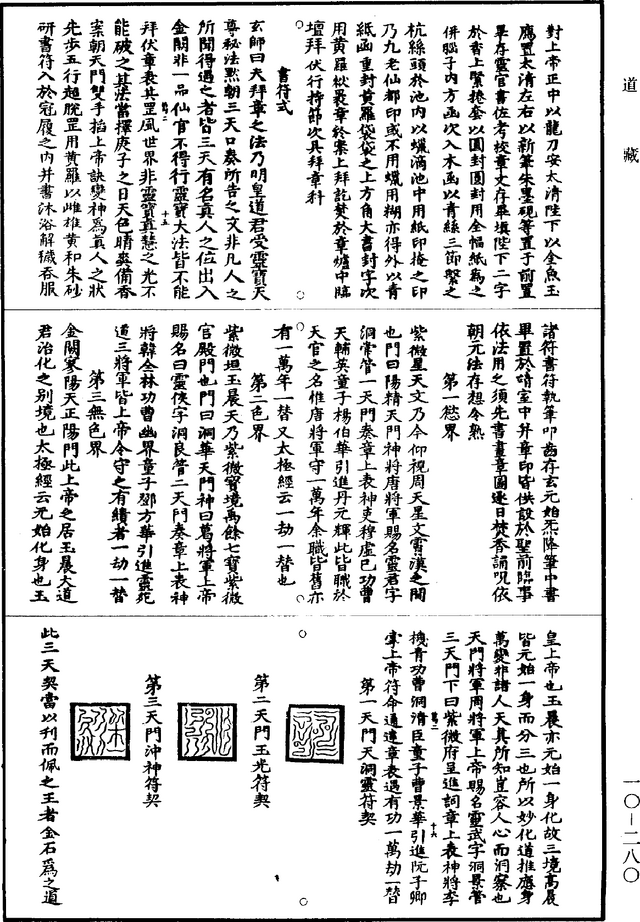 道藏
對上帝正中以龍刀安太清陛下以金魚玉
鴈置太清左右以新筆朱墨硯等置于前置
畢存靈官書佐考校章文存畢填陛下二字
於香上緊捲套以圓封圓封用全幅紙為之
併腦子內方函次入本函以青絲三節繫之
杭絲頭於池內以蠟滴池中用紙印掩之印
乃九老仙都印或不用蠟用糊亦得外以青
紙函重封黃羅袋袋之上方角大書封字次
用黃羅袱裹章終案上拜訖焚於章爐中臨
壇拜伏行持節次具拜章科
書符式
玄師曰夫拜章之法乃明皇道君受靈寶天
尊祕法默朝三天口奏所告之文非凡人之
所聞得遇之者皆三天有名真人之位出入
金闕非一品仙官不得行靈寶大法皆不能
拜伏章表其罡風世界非靈寶真慧之光不
能破之其法當擇庚子之日天色晴爽備香
案朝天門雙手掐上帝訣變神為真人之狀
先步五行超脫罡用黃羅以雌雄黃和朱砂
研書符入於冠履之內并書沐浴解穢吞服
諸符書符執筆叩齒存玄元始炁降筆中書
畢置於靖室中并章印皆供設於聖前臨事
依法用之須先書畫章圖逐日焚香誦呪依
朝元法存想令熟
第一慾界
紫微星天文乃今仰視周天星文霄漢之間
也門曰陽精天門神將唐將軍賜名靈君字
洞常管一天門奏章上表神吏穆虛巳功曹
天輔英童子楊伯華引進丹元輝此皆職於
天官之名惟唐將軍守一萬年余職皆舊亦
有一萬年一替又太極經云一劫一替也
第二色界
紫微垣玉晨天乃紫微寶境萬餘七寶紫微
官殿門也門曰洞華天門神曰葛將軍上帝
賜名曰靈俠字洞良管二天門奏章上表神
將韓全林功曹幽界童子鄧方華引進靈死
道三將軍皆上帝令守之有績者一劫一替
第三無色界
金闕寥陽天正陽門此上帝之居玉晨大道
君治化之別境也太極經云元始化身也玉
皇上帝也玉晨亦元始一身化故三境高晨
皆元始一身而分三也所以妙化道推應身
萬變非諸人天具所知豈容人心而洞察也
天門將軍周將軍上帝賜名靈武字洞景管
三天門下曰紫微府呈進詞章上表神將李
機青功曹洞清臣童子曹景華引進阮子卿
掌上帝符命通達章表遇有功一萬劫一替
第一天門天洞靈符契
第二天門玉光符契
第三天門沖神符契
此三天契當以刊而佩之王者金石為之道
一〇－二八〇